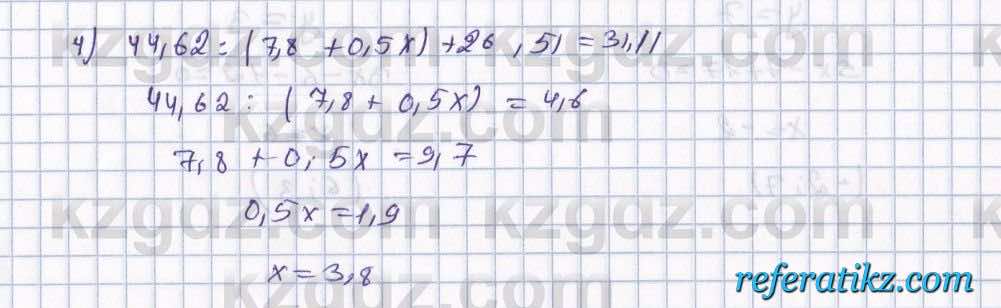 4) 44,62 : (7,8 + 0,5x) + 26,51 = 31,11
44,62 : (7,8 + 0,5x) = 4,6
kzgdz.com
7,8 + 0,5x = 9,7
0,5x = 1,9
kzgdz.com kzgdz.com
x = 3,8
referatikz.com